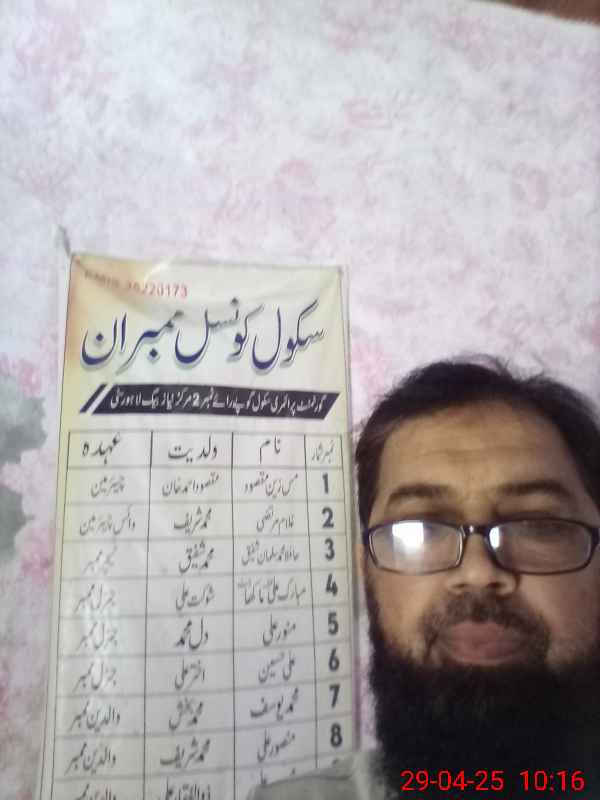 35220173
سکول کونسل ممبران
گورنمنٹ پرائمری سکول گوپے رائے نمبر 2 مرکز نیاز بیگ لاہور سٹی
نمبر شمار نام ولدیت عہدہ
1 مس زین مقصود مقصود احمد خان چیئرمین
2 غلام مرتضی محمد شریف وائس چیئرمین
3 حافظ محمد سلمان شفیق محمد شفیق ٹیچر ممبر
4 مبارک علی شوکت علی جنرل ممبر
5 منور علی دل محمد جنرل ممبر
6 علی حسین اختر علی جنرل ممبر
7 محمد یوسف محمد بخش والدین ممبر
8 منصور علی محمد شریف والدین ممبر
ذوالفقار علی والدین ممبر
29-04-25 10:16